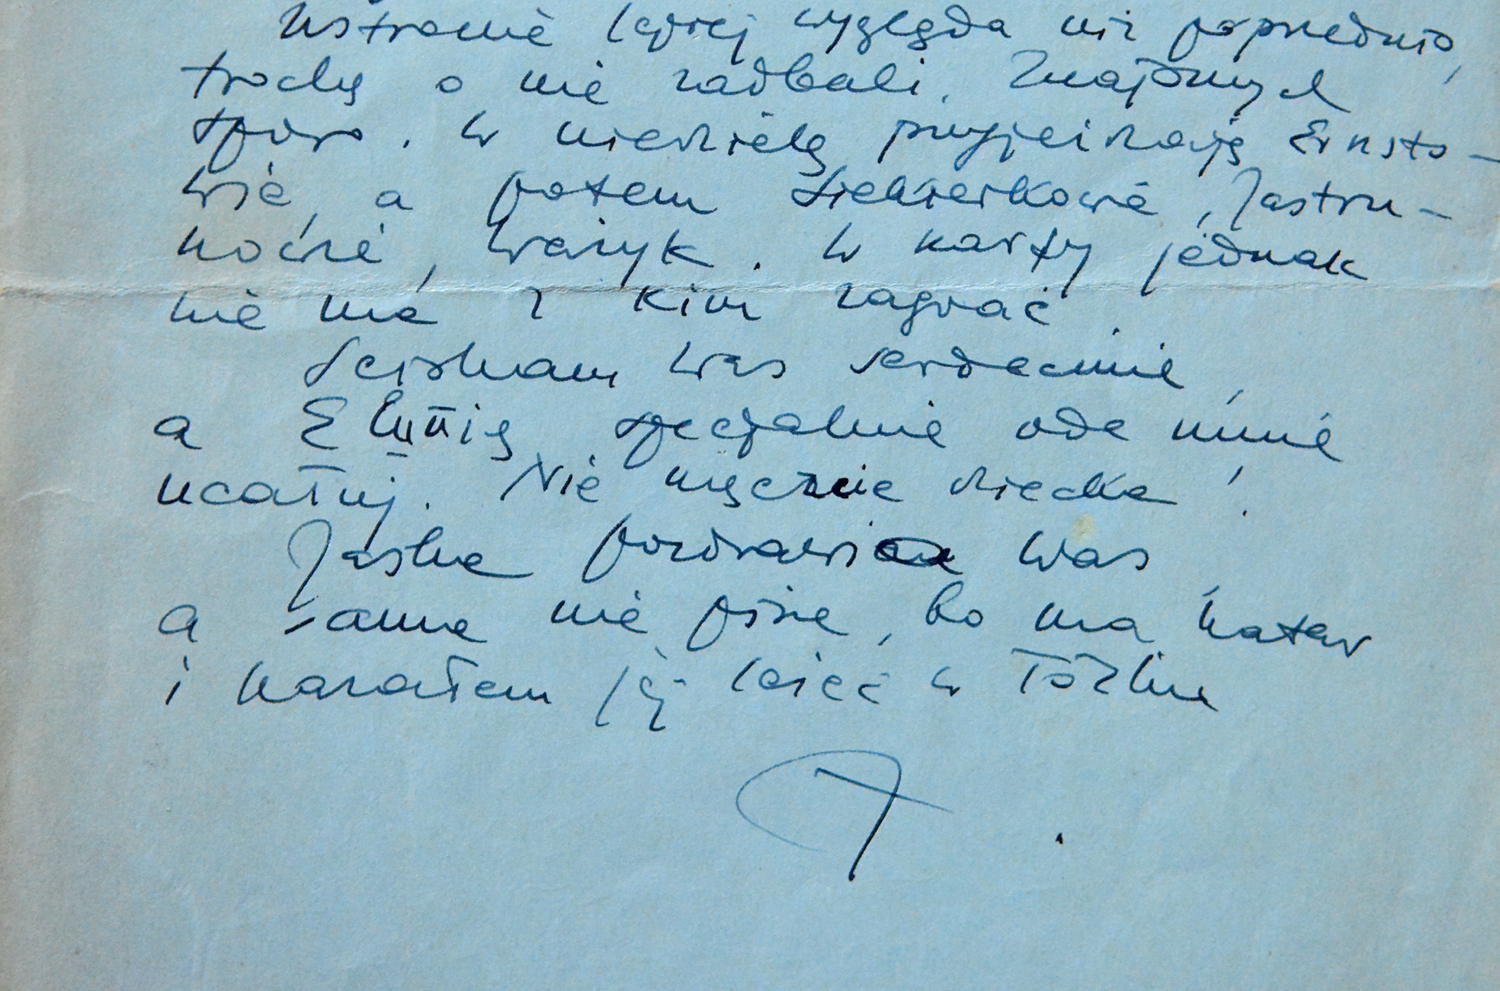 Ustronie lepiej wygląda niż poprzednio,
trochę o nie zadbali. Znajomych
sporo. W niedzielę przyjeżdżają Ernsto-
wie, a potem Siekierkowie, Jastru-
nowie, Ważyk. W karty jednak
nie ma z kim zagrać.
Ściskam Was serdecznie,
a Elunię specjalnie ode mnie
ucałuj. Nie męczcie dziecka!
Jaśka pozdrawia Was
a sama nie pisze, bo ma katar
i kazałem jej leżeć w łóżku